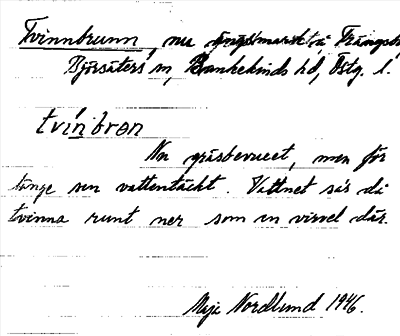 Tvinnbrunn, nu ängsmark å Trängsb
Björsäters sn, Bankekinds hd, Östg. l.
tvinbron
Nu gräsbevuxet, men för
länge sen vattentäckt. Vattnet sås då
tvinna runt ner som en virvel där.
Maja Nordlund 1946.